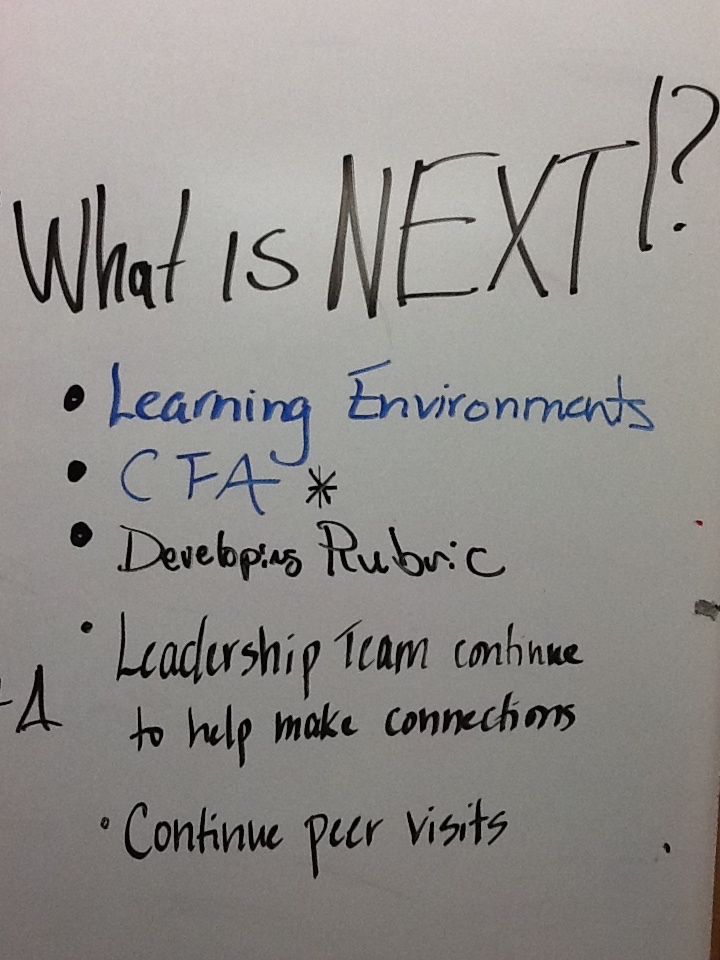 What is NEXT!?
• Learning Environments
• CFA *
• Developing Rubric
• Leadership Team continue
to help make connections
• Continue peer visits